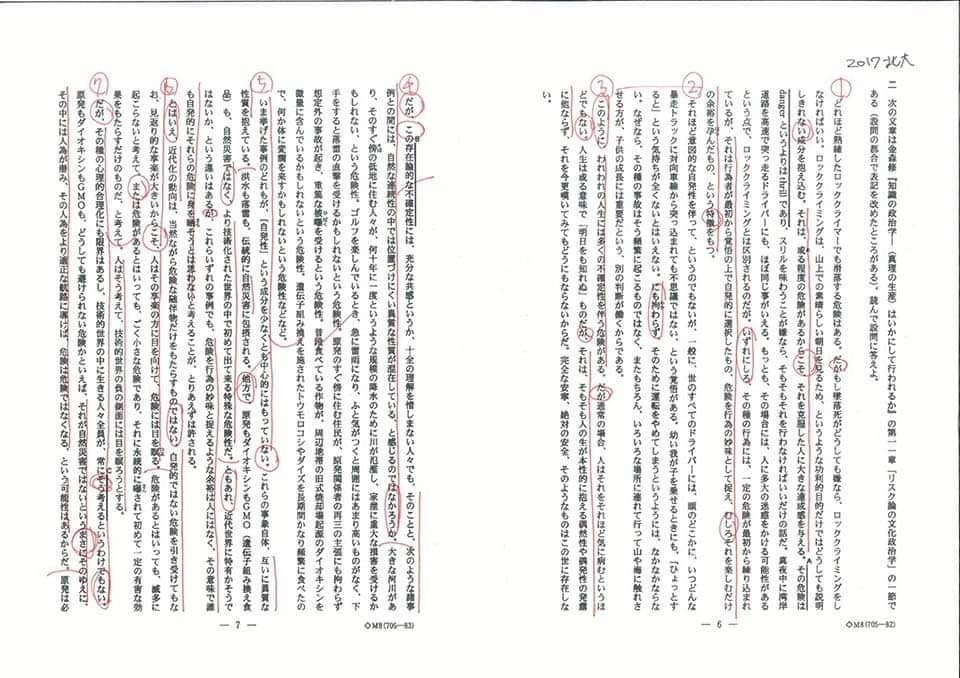 2017 北大
二 次の文章は金森修『知識の政治学―〈真理の生産〉はいかにして行われるか』の第一一章「リスク論の文化政治学」の一節で
ある(設問の都合で表記を改めたところがある)。読んで設問に答えよ。
① どれほど熟練したロッククライマーでも滑落する危険はある。だがもし墜落死がどうしても嫌なら、ロッククライミングをし
なければいい。ロッククライミングは、山上での素晴らしい朝日を見るため、というような功利的目的だけではどうしても説明
しきれない成分を抱え込む。それは、或る程度の危険があるからこそ、それを克服した人に大きな達成感を与える。その危険は
danger というよりは thrill であり、スリルを味わうことが嫌なら、そもそもそれを行わなければいいだけの話だ。真夜中に湾岸
道路を高速で突っ走るドライバーにも、ほぼ同じ事がいえる。もっとも、その場合には、人に多大の迷惑をかける可能性がある
という点で、ロッククライミングとは区別されるのだが。いずれにしろ、その種の行為には、一定の危険が最初から練り込まれ
ているが、それは行為者が最初から覚悟の上で自発的に選択したもの、危険を行為の妙味として捉え、むしろそれを楽しむだけ
の余裕を孕んだもの、という特徴をもつ。
② それほど意図的な自発性を伴って、というのでもないが、一般に、世のすべてのドライバーには、頭のどこかに、いつどんな
暴走トラックに対向車線から突っ込まれても不思議ではない、という覚悟がある。幼い我が子を乗せるときにも、「ひょっとす
ると」という気持ちが全くないとはいえない。にも拘わらず、そのために運転をやめてしまうというようには、なかなかならな
い。なぜなら、その種の事故はそう頻繁に起こるものではなく、またもちろん、いろいろな場所に連れて行って山や海に触れさ
せる方が、子供の成長には重要だという、別の判断が働くからである。
③ このように、われわれの人生には多くの不確定性を伴う危険がある。だが通常の場合、人はそれをそれほど気に病むというほ
どでもない。人生は或る意味で「明日をも知れぬ」ものだが、それは、そもそも人の生が本性的に抱える偶然性や偶発性の発露
に他ならず、それを今更嘆いてみてもどうにもならないからだ。完全な安寧、絶対の安全、そのようなものはこの世に存在しな
い。
― 6 ―
◇M8(705―82)
④ だが、この存在論的な不確定性には、充分な共感というか、十全の理解を惜しまない人々でも、そのことと、次のような諸事
例との間には、自然な連続性の中では位置づけにくい異質な性質が混在している、と感じるのではなかろうか。大きな河川があ
り、そのすぐ傍の低地に住む人々が、何十年に一度というような規模の降水のために川が氾濫し、家産に重大な損害を受けるか
もしれない、という危険性。ゴルフを楽しんでいるとき、急に雷雨になり、ふと気がつくと周囲にはあまり高いものがなく、下
手をすると落雷の直撃を受けるかもしれないという危険性。原発のすぐ傍に住む住民が、原発関係者の再三の主張にも拘わらず
想定外の事故が起き、重篤な被曝を受けるという危険性。普段食べている作物が、周辺地帯の旧式焼却場起源のダイオキシンを
微量に含んでいるかもしれないという危険性。遺伝子組み換えを施されたトウモロコシやダイズを長期間かなり頻繁に食べたの
で、何か体に変調を来すかもしれないという危険性などなど。
⑤ いま挙げた事例のどれもが、〈自発性〉という成分を少なくとも中心的にはもっていない。これらの事象自体、互いに異質な
性質を抱えている。洪水も落雷も、伝統的に自然災害に包摂される。他方で、原発もダイオキシンもGMO(遺伝子組み換え食
品)も、自然災害ではなく、より技術化された世界の中で初めて出て来る特殊な危険性だ。ともあれ、近代世界に特有かそうで
はないか、という違いはあるが、これらいずれの事例でも、危険を行為の妙味と捉えるような余裕は人にはなく、その意味で誰
も自発的にそれらの危険に身を晒そうとは思わないと考えることが、とりあえずは許される。
⑥ とはいえ、近代化の動向は、当然ながら危険な随伴物だけをもたらすものではない。自発的ではない危険を引き受けてもな
お、見返り的な享楽が大きいからこそ、人はその享楽の方に目を向けて、危険には目を瞑る。危険があるとはいっても、滅多に
起こらないと考えて、または危険があるとはいっても、ごく小さな危険であり、それに永続的に曝されて初めて一定の有害な効
果をもたらすだけのものだ、と考えて、人はそう考えて、技術的世界の負の側面には目を瞑ろうとする。
⑦ だが、その種の心理的合理化にも限界はあるし、技術的世界の中に生きる人々全員が、常にそう考えるというわけでもない。
原発もダイオキシンもGMOも、どうしても避けられない危険かといえば、それが自然災害ではないというまさにそのゆえに、
その中には人為が潜み、その人為をより適正な航路に導けば、危険は危険ではなくなる、という可能性はあるからだ。原発は必
― 7 ―
◇M8(705―83)